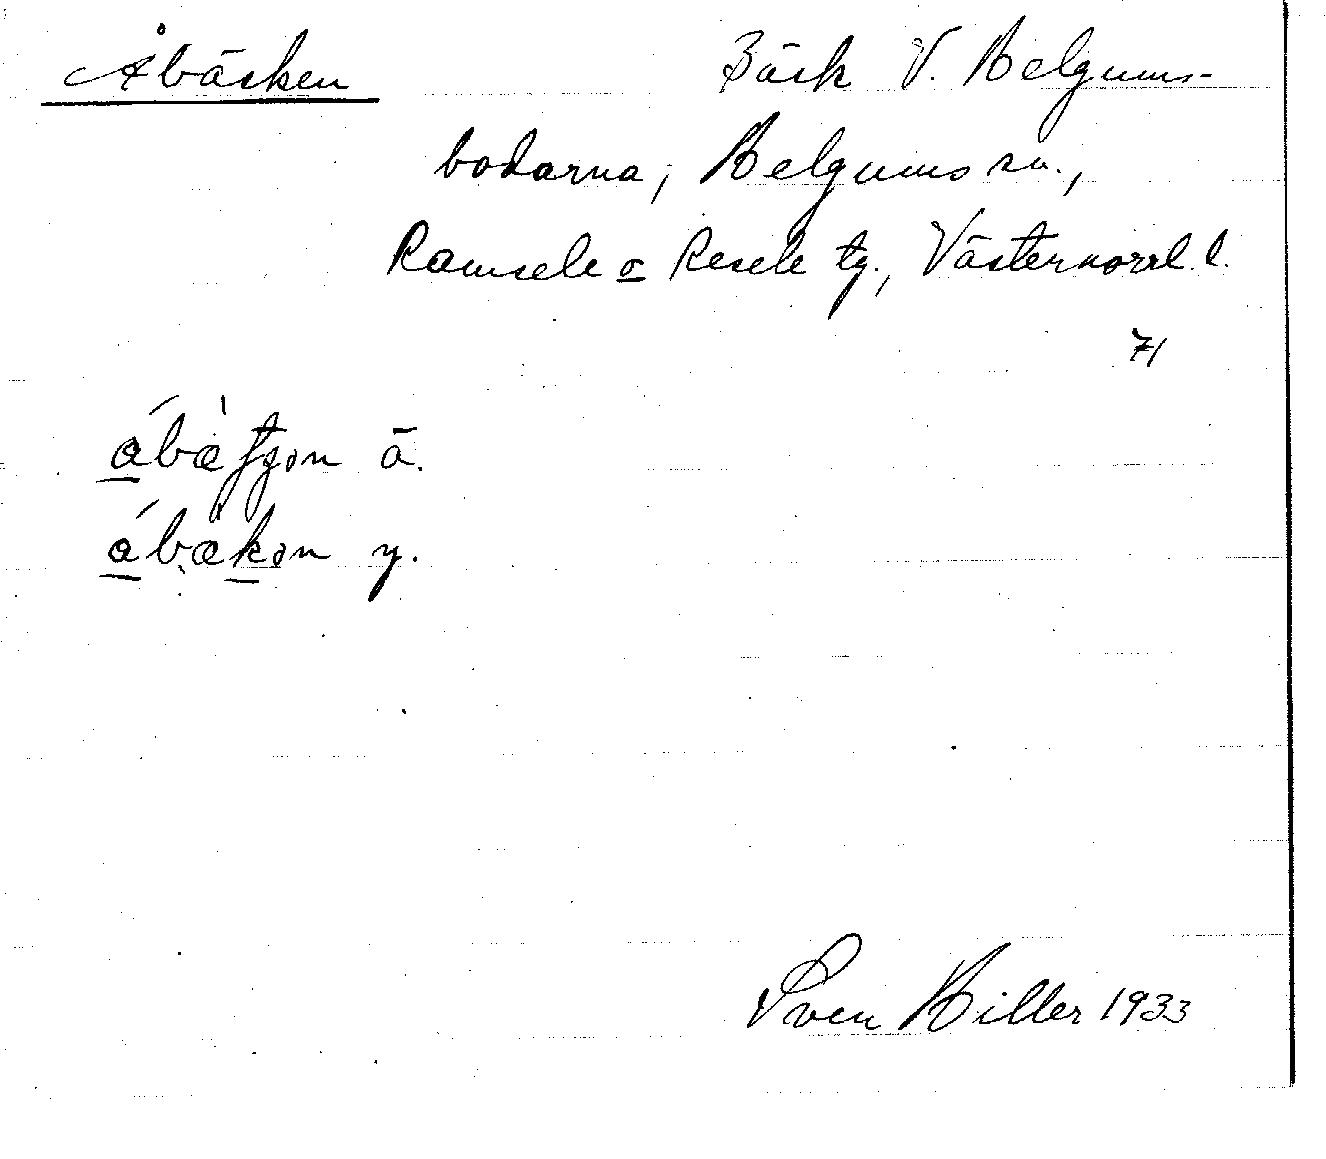 Åbäcken Bäck V. Helgums-
bodarna, Helgums sn.,
Ramsele o Resele tg., Västernorrl. l.
71
ábæ̀ʃtʒən ä.
ábækən y.
Sven Hiller 1933